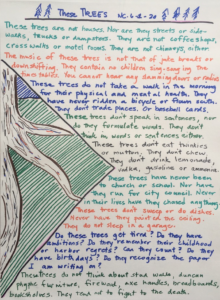 These TREES
These trees are not houses. Nor are they streets or side-
walks, trucks or dumpsters. They are not coffee shops,
cross walks or motel rooms. They are not chimneys, either.
The music of these trees is not that of jake breaks or
downshifting. They contain no children singing along the
turn tables. You cannot hear any slamming doors or
These trees do not take a walk in the morning
for their physical and mental health. They
have never ridden a bicycle or flown south.
They don't trade places. Or baseball cards.
These trees don't speak in sentences, nor
do they formulate words. They don't
in words or sentences either.
These trees don't eat thinking
or matter. They don't chew.
They don't drink lemonade,
vodka, gasoline or ammonia.
These trees have never been
to church or school. Nor have
they run for city council. Never
in their lives have they chased anything.
These trees don't sweep or do dishes,
never have they painted the ceiling.
They do not sleep in a garage.
Do these trees get tired? Do they have
ambitions? Do they remember their childhood
or harbor regrets? Can they count? Do they
have birthdays? Do they recognize the paper
I am writing on?
These trees do not think about stud walls, dunnage
furniture, firewood, axe handles, breadboards,
bookshelves. They to fight to the death.